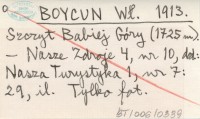 BOYCUN Wł. 1913.
Szczyt Babiej Góry (1725 m).
— Nasze Zdroje 4, nr. 10, dod:
Nasza Turystyka 1, nr. 7:
29, il. Tylko fot.